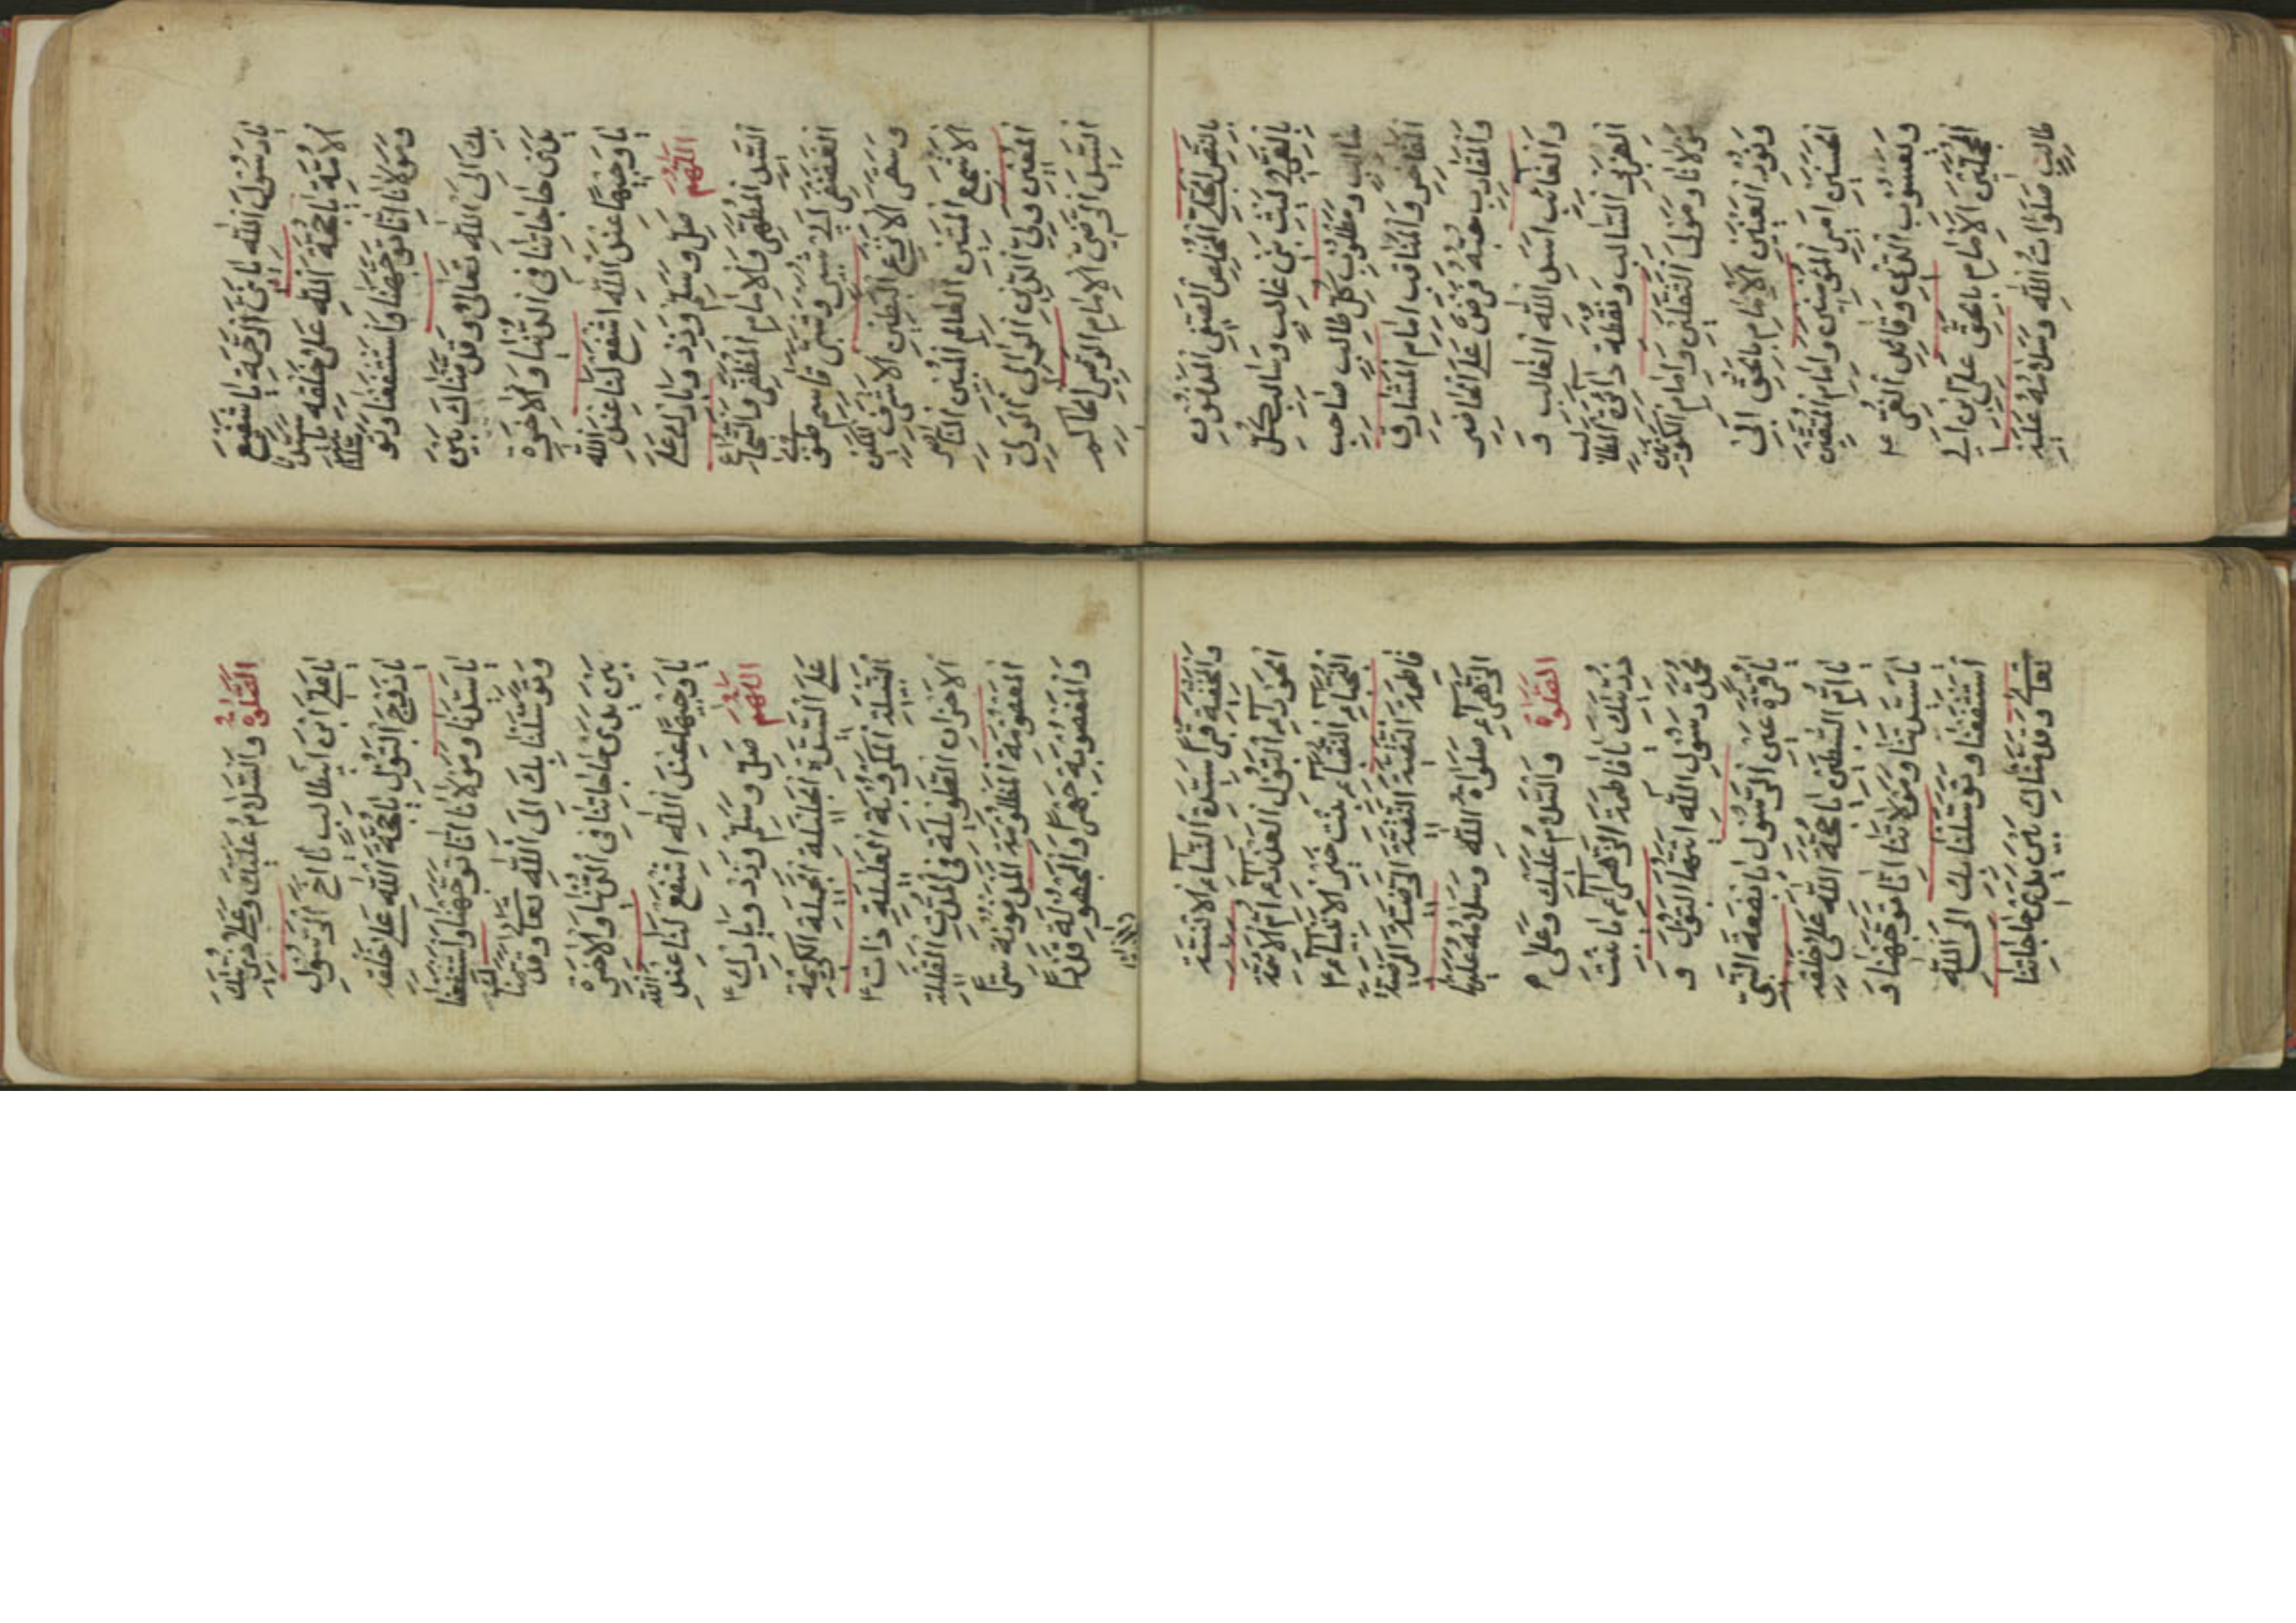 يا رسول الله يا نبي الرحمة يا شفيع
الامة يا حجة الله على خلقه يا سيدنا
ومولانا انا توجهنا واستشفعنا وتو
سلنا
بك الى الله تعالى وقدمناك بين
يدي حاجاتنا في الدنيا والاخرة
يا وجيها عند الله اشفع لنا عند الله
اللهم صل وسلم وزد وبارك على
السيد المطهر والامام المظفر والشجاع
الغضنفر ابي شبير وشبر قاسم طوبى
وسقر الانزع البطين الاشرف المكين
الاشجع المتين العالم المبين الناصر
المعين ولي الدين الوالي الولي
السيد الرضي الامام الوصي الحاكم
بالنص الجلي المخلص الصفي المدفون
بالغري ليث بني غالب وسالب كل
غالب ومطلوب كل طالب صاحب
المفاخر والمناقب امام المشارق
والمغارب حبه فرض على الحاضر
والغائب اسد الله الغالب و
الهزبر السالب ونقطة دائرة المطالب
مولانا ومولى الثقلين وامام الكونين
ونور العينين الامام بالحق ابي
الحسنين امير المؤمنين وامام المتقين
ويعسوب الدين وقائد الغر
المحجلين الامام بالحق علي ابن ابي
طالب صلوات الله وسلامه عليه
الصلوة والسلام عليك وعلى ذريتك
يا علي ابن ابيطالب يا اخ الرسول
يا زوج البتول يا حجة الله على خلقه
يا سيدنا ومولانا انا توجهنا واستشفعنا
وتوسلنا بك الى الله تعالى وقد
بين يدي حاجاتنا في الدنيا والاخرة
يا وجيها عند الله اشفع لنا عند الله
اللهم صل وسلم وزد وبارك
على السيدة الجليلة الجميلة الكريمة
النبيلة المكروبة العليلة ذات
الاحزان الطويلة في المدة القليلة
المعصومة المظلومة
والمغصوبة جهرا والمجهولة قدرا
والمخفية قبرا سيدة النساء الانسية
الحوراء البتول العذراء ام الائمة
النجباء النقباء بنت خير الانبياء
فاطمة التقية النقية الرضية
الزهراء صلوة الله وسلامه عليها
الصلوة والسلام عليك وعلى
ذريتك يا فاطمة الزهراء يا بنت
محمد رسول الله ايتها البتول و
يا قرة عين الرسول يا بضعة النبي
يا ام السبطين يا حجة الله على خلقه
يا سيدتنا ومولاتنا انا توجهنا و
استشفعنا وتوسلنا بك الى الله
تعالى وقدمناك بين يدي حاجاتنا